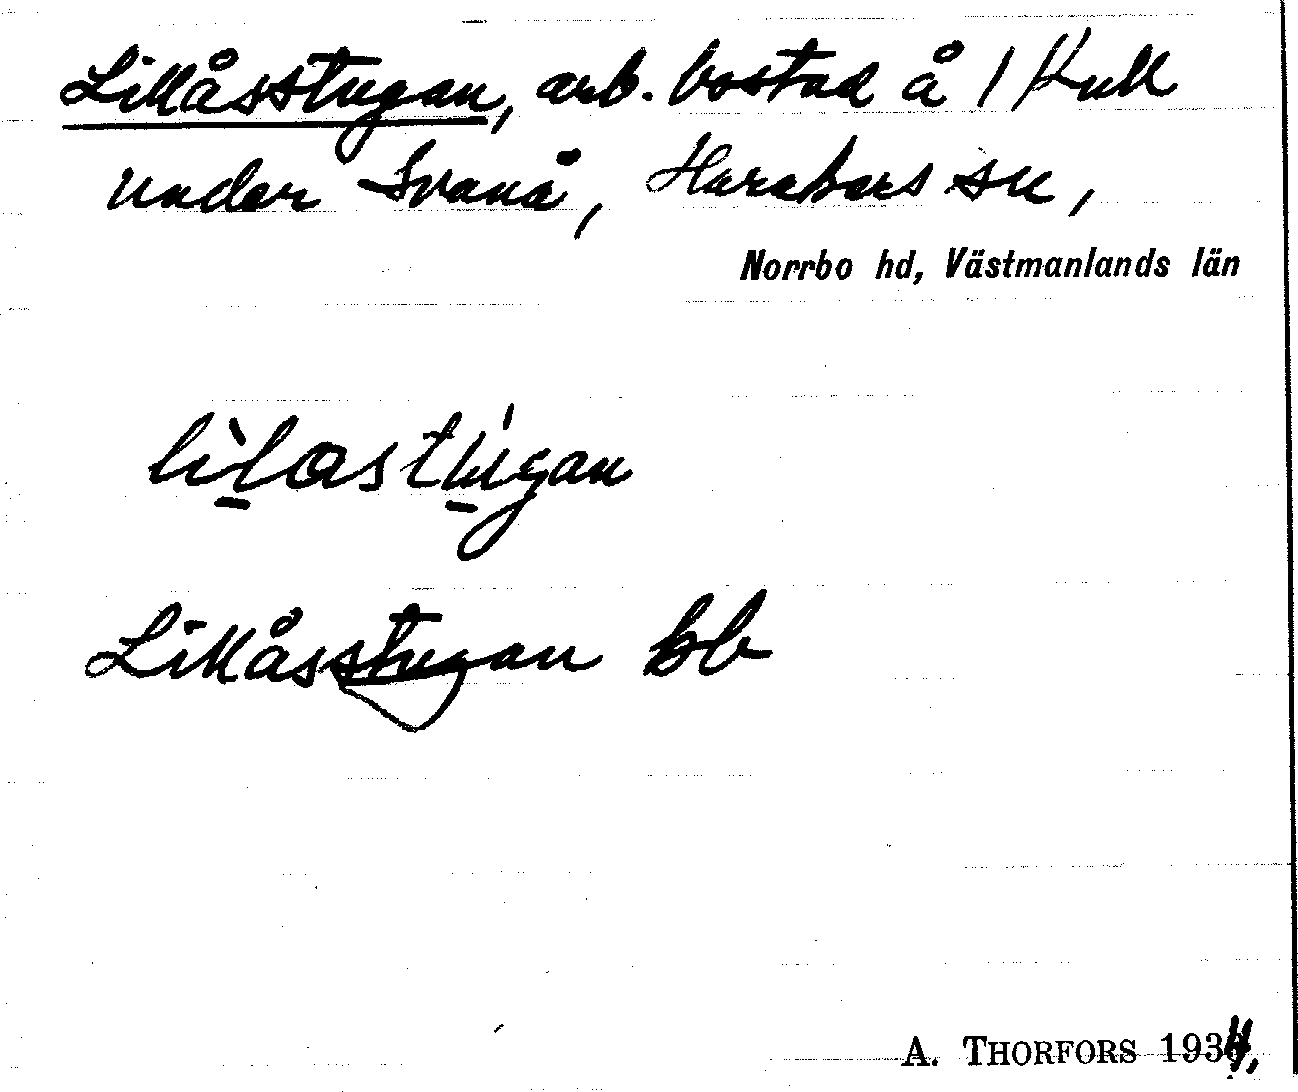 Lillåsstugan, arb. bostad å 1 Kull
under Svanå, Haraker s sn,
Norrbo hd, Västmanlands län
lilåstugan
Lillåsstugan bb
A. THORFORS 1934,